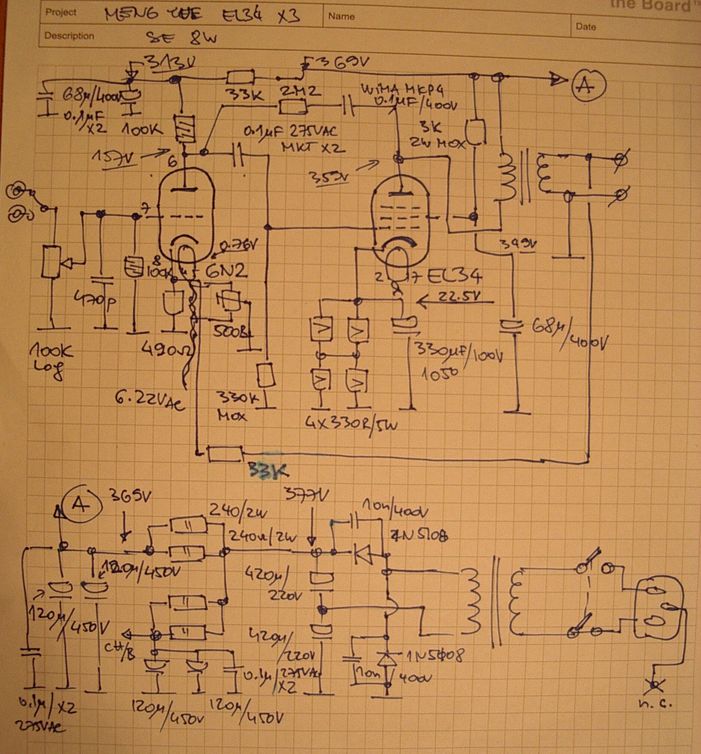 the Board™
Project MENG YUE EL34 X3 Name
Description SE 8W Date
313V 369V
68µ/400V
0.1µF
X2
100K
33K
2M2
WIMA MKP4
0.1µF/400V
A
157V
6
0.1µF 275VAC
MKT X2
3K
2W MOX
359V
7
0.76V
8
100K
6N2
470p
349V
2 7 EL34
22.5V
100K
Log
490Ω
500Ω
330µF/100V
105°
68µ/400V
6.22VAC
330K
MOX
4X330R/5W
33K
A
369V
240/2W
377V
10n/400V
1N5408
240Ω/2W
120µ/450V
420µ/
220V
120µ/450V
CH/B
420µ/
220V
1N5408
0.1µ/275VAC
X2
10n
400V
0.1µ/X2
275VAC
120µ/450V 120µ/450V
n.c.